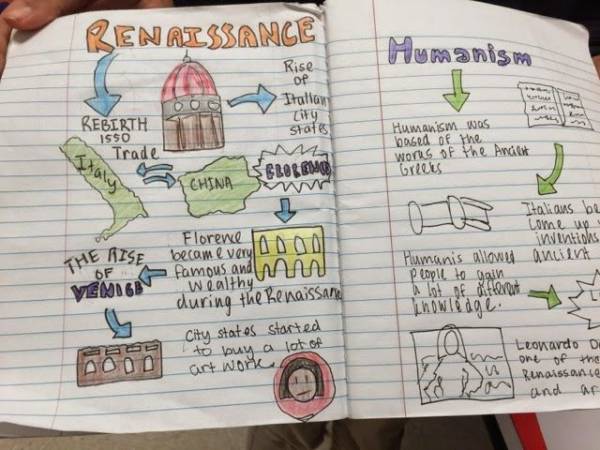 RENAISSANCE
Rise
of
Itallian
City
states
REBIRTH
1550
Trade
Italy
CHINA
FLORENCE
Florence
became very
famous and
wealthy
during the Renaissan
THE RISE
OF
VENICE
City states started
to buy a lot of
art work.
Humanism
Humanism was
based of the
works of the Ancient
Greeks
Italians be
come up
inventions
ancient
Humanis allowed
people to gain
a lot of different
knowledge.
Leonardo D
one of the
Renaissanse
and ar